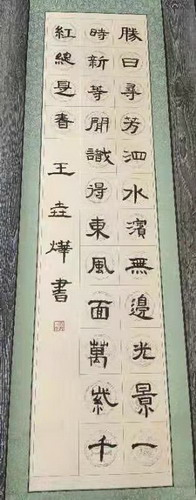 勝日尋芳泗水濱無邊光景一
時新等閒識得東風面萬紫千
紅總是春 王垚燁書